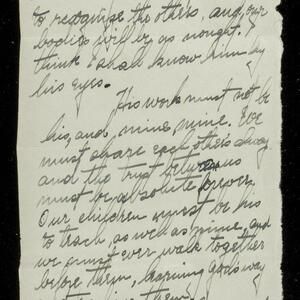 to recognize the others, and our
bodies will be as nought. I
think I shall know him by
his eyes.
His work must not be
his, and mine, mine. We
must share each others always
and the trust between us
must be absolute forever.
Our children must be his
to teach, as well as mine, and
we must ever walk together
before them, learning God's way
them